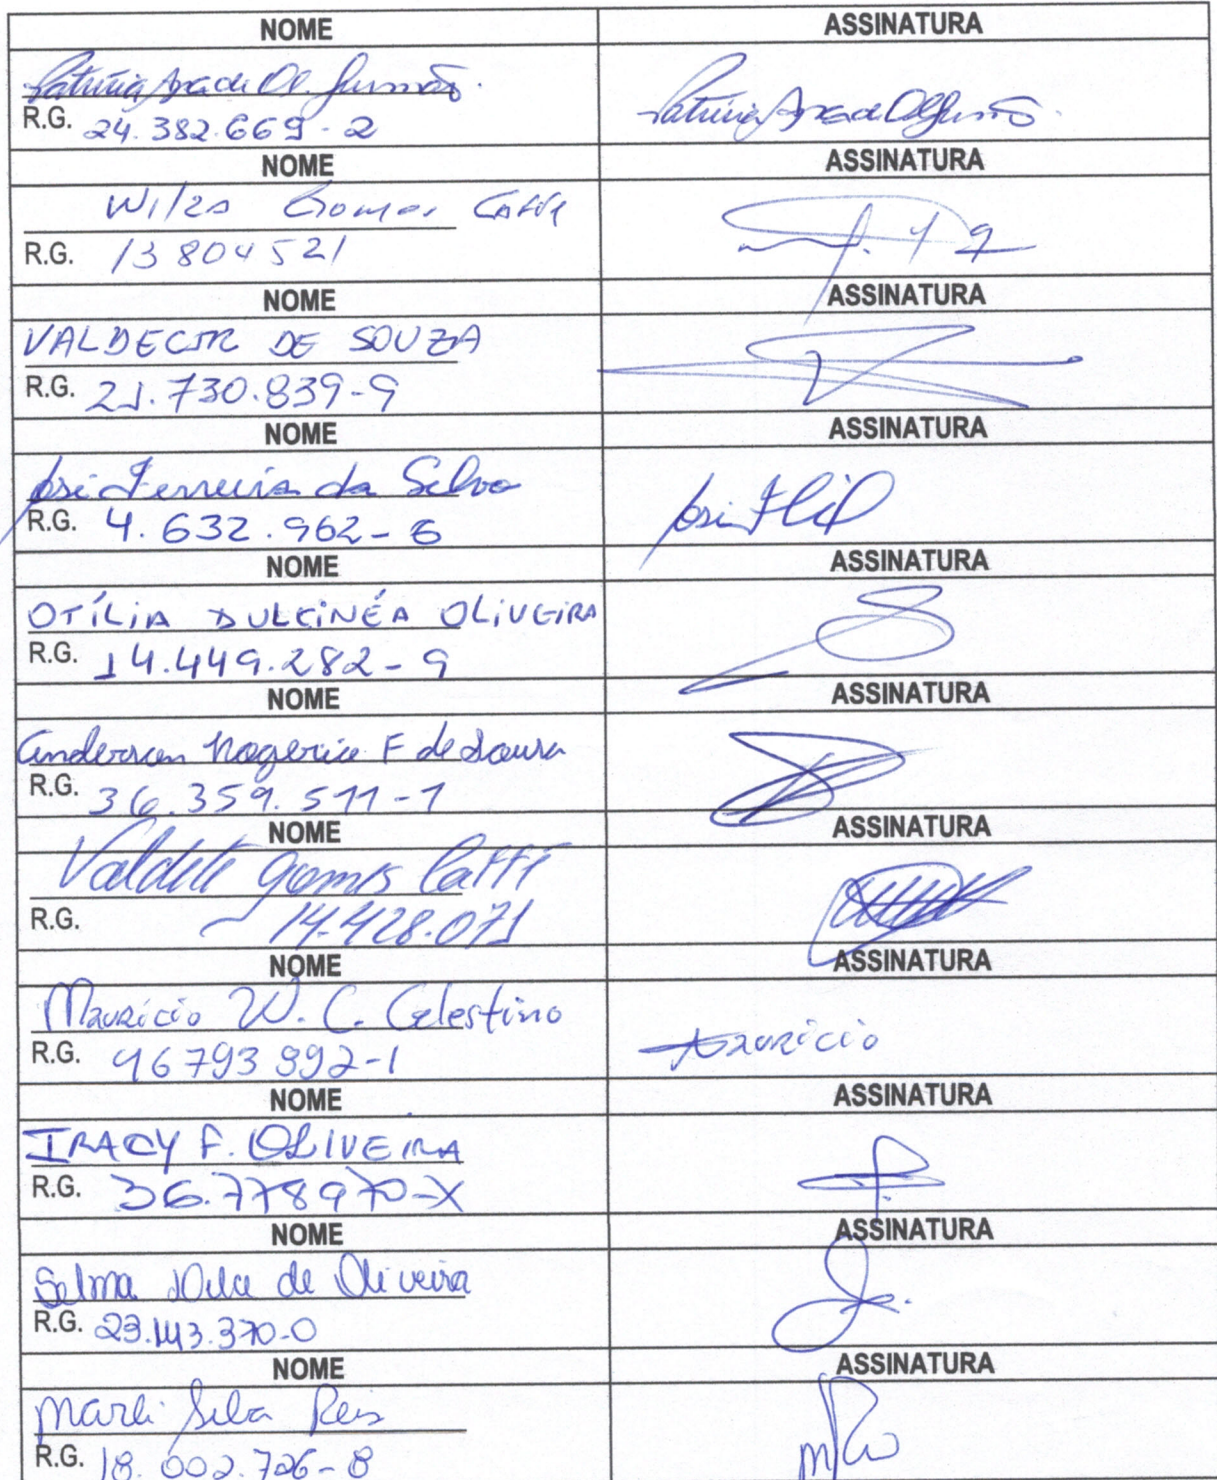 NOME ASSINATURA
R.G. 24.382.669-2
NOME ASSINATURA
Gomes
R.G. 13804521
NOME ASSINATURA
VALDECIR DE SOUZA
R.G. 21.730.839-9
NOME ASSINATURA
José Ferreira da Silva
R.G. 4.632.962-6
NOME ASSINATURA
OTÍLIA DULCINÉA OLIVEIRA
R.G. 14.449.282-9
NOME ASSINATURA
Anderson Rogerio F de Souza
R.G. 36.359.511-1
NOME ASSINATURA
Valdete Gomes Caffé
R.G. 14.428.071
NOME ASSINATURA
Mauricio W. C. Celestino Mauricio
R.G.
NOME ASSINATURA
IRACY F. OLIVEIRA
R.G. 36.778970-X
NOME ASSINATURA
Selma de Oliveira
R.G. 23.143.370-0
NOME ASSINATURA
Marli Silva Reis
R.G. 18.002.726-8